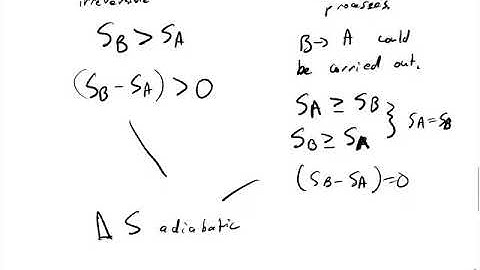 irreversible
S_B > S_A
(S_B - S_A) > 0
processes
B → A could
be carried out.
S_A ≥ S_B
S_B ≥ S_A } S_A = S_B
(S_B - S_A) = 0
Δ S adiabatic